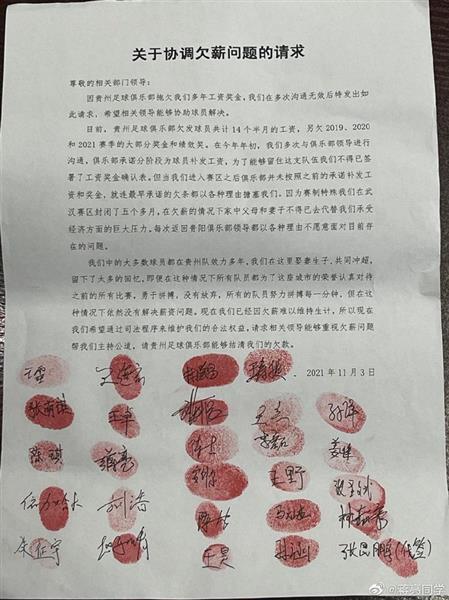 关于协调欠薪问题的请求
尊敬的相关部门领导:
因贵州足球俱乐部拖欠我们多年工资奖金,我们在多次沟通无效后特发出如
此请求,希望相关领导能够协助球员解决。
目前,贵州足球俱乐部欠发球员共计14个半月的工资,另欠2019、2020
和2021赛季的大部分奖金和绩效奖。在今年年初,我们多次与俱乐部领导进行
沟通,俱乐部承诺分阶段为球员补发工资,为了能够留住这支队伍我们不得已签
署了工资奖金确认表。但当我们进入赛区之后俱乐部并未按照之前的承诺补发工
资和奖金,就连最早承诺的欠条都以各种理由搪塞我们。因为赛制特殊我们在武
汉赛区封闭了五个多月,在欠薪的情况下家中父母和妻子不得已去代替我们承受
经济方面的巨大压力。每次返回贵阳俱乐部领导都以各种理由不愿意面对目前存
在的问题。
我们中的大多数球员都在贵州队效力多年,我们在这里娶妻生子、共同冲超,
留下了太多的回忆。即便在这种情况下所有队员都为了这座城市的荣誉认真对待
之前的所有比赛,勇于拼搏,没有放弃,所有的队员努力拼搏每一分钟。但在这
种情况下依然没有解决薪资问题。现在我们已经因欠薪难以维持生计,所以现在
我们希望通过司法程序来维护我们的合法权益,请求相关领导能够重视欠薪问题
帮我们主持公道,请贵州足球俱乐部能够结清我们的欠款。
2021年11月3日
王卓
陈琪 蒋亮
王野
刘浩
朱征宇
王昊 张思鹏(代签)
@蒋亮同学